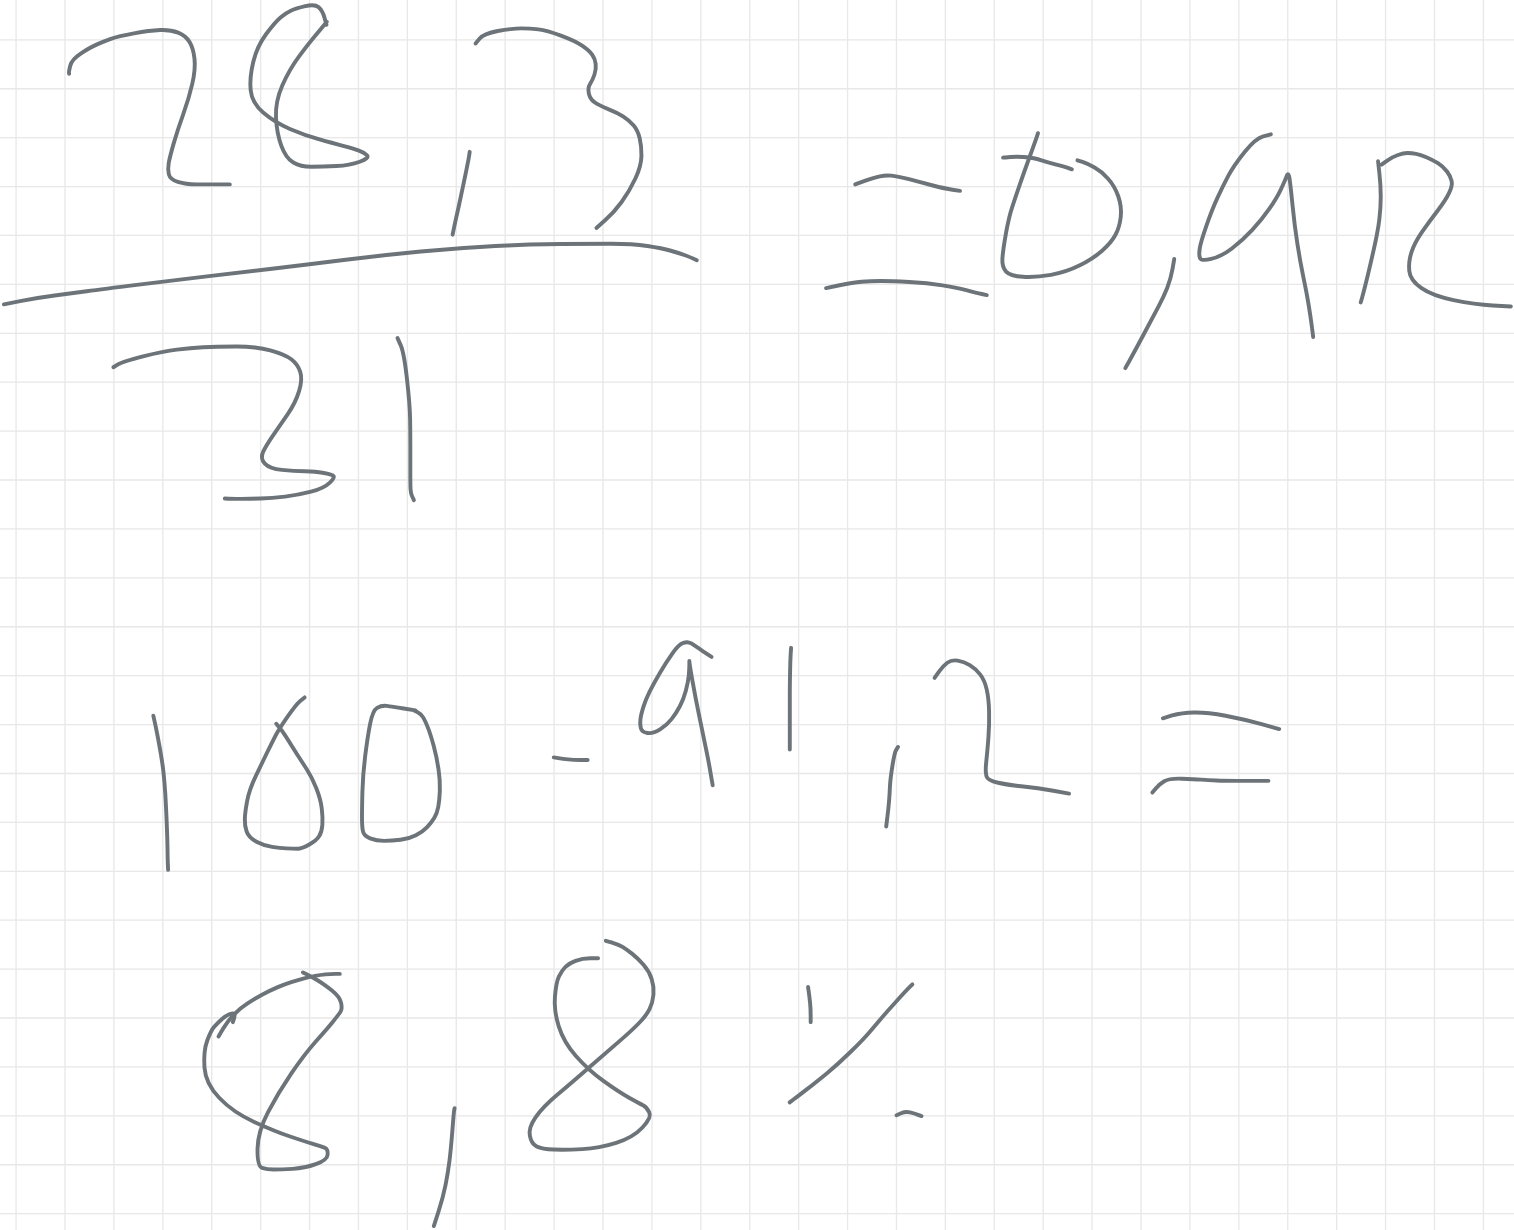 28,3
31
= 0,912
100 - 91,2 =
8,8 %